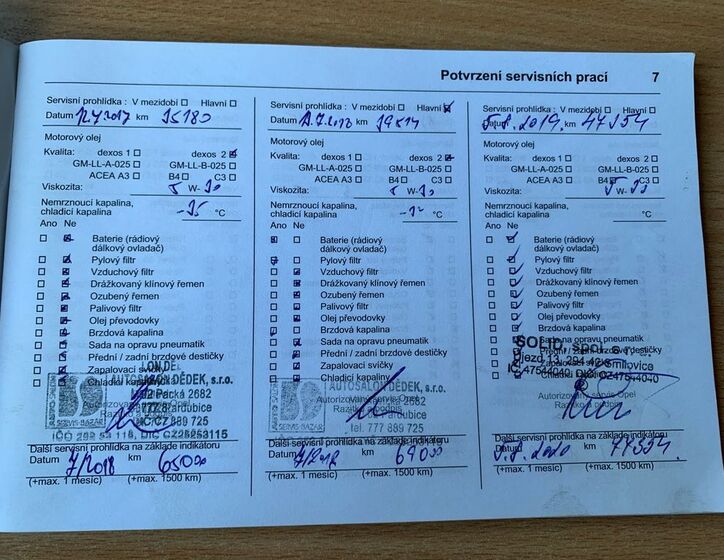 Potvrzení servisních prací 7
Servisní prohlídka : V mezidobí Hlavní
Datum 12.7.2017 km 35180
Motorový olej
Kvalita: dexos 1 dexos 2
GM-LL-A-025 GM-LL-B-025
ACEA A3 B4 C3
Viskozita: 5 W-30
Nemrznoucí kapalina,
chladicí kapalina -35 °C
Ano Ne
Baterie (rádiový
dálkový ovladač)
Pylový filtr
Vzduchový filtr
Drážkovaný klínový řemen
Ozubený řemen
Palivový filtr
Olej převodovky
Brzdová kapalina
Sada na opravu pneumatik
Přední / zadní brzdové destičky
Zapalovací svíčky
Chladicí kapaliny
AUTOSALON DĚDEK, s.r.o.
Pardubice
777 889 725
Další servisní prohlídka na základě indikátoru
Datum 7/2018 km 65000
(+max. 1 měsíc) (+max. 1500 km)
Servisní prohlídka : V mezidobí Hlavní
Datum km 39514
Motorový olej
Kvalita: dexos 1 dexos 2
GM-LL-A-025 GM-LL-B-025
ACEA A3 B4 C3
Viskozita: 5 W-30
Nemrznoucí kapalina,
chladicí kapalina °C
Ano Ne
Baterie (rádiový
dálkový ovladač)
Pylový filtr
Vzduchový filtr
Drážkovaný klínový řemen
Ozubený řemen
Palivový filtr
Olej převodovky
Brzdová kapalina
Sada na opravu pneumatik
Přední / zadní brzdové destičky
Zapalovací svíčky
Chladicí kapaliny
AUTOSALON DĚDEK, s.r.o.
Autorizovaný servis Opel
Razítko a podpis
tel. 777 889 725
Další servisní prohlídka na základě indikátoru
Datum km 69000
(+max. 1 měsíc) (+max. 1500 km)
Servisní prohlídka : V mezidobí Hlavní
Datum 5.8.2019 km 47954
Motorový olej
Kvalita: dexos 1 dexos 2
GM-LL-A-025 GM-LL-B-025
ACEA A3 B4 C3
Viskozita: 5 W-
Nemrznoucí kapalina,
chladicí kapalina °C
Ano Ne
Baterie (rádiový
dálkový ovladač)
Pylový filtr
Vzduchový filtr
Drážkovaný klínový řemen
Ozubený řemen
Palivový filtr
Olej převodovky
Brzdová kapalina
SOLID, spol. s r.o.
Sada na opravu pneumatik
Přední / zadní brzdové destičky
Újezd 13, 294 42 Smilovice
Autorizovaný servis Opel
Razítko a podpis
Další servisní prohlídka na základě indikátoru
Datum 5.8.2020 km
(+max. 1 měsíc) (+max. 1500 km)